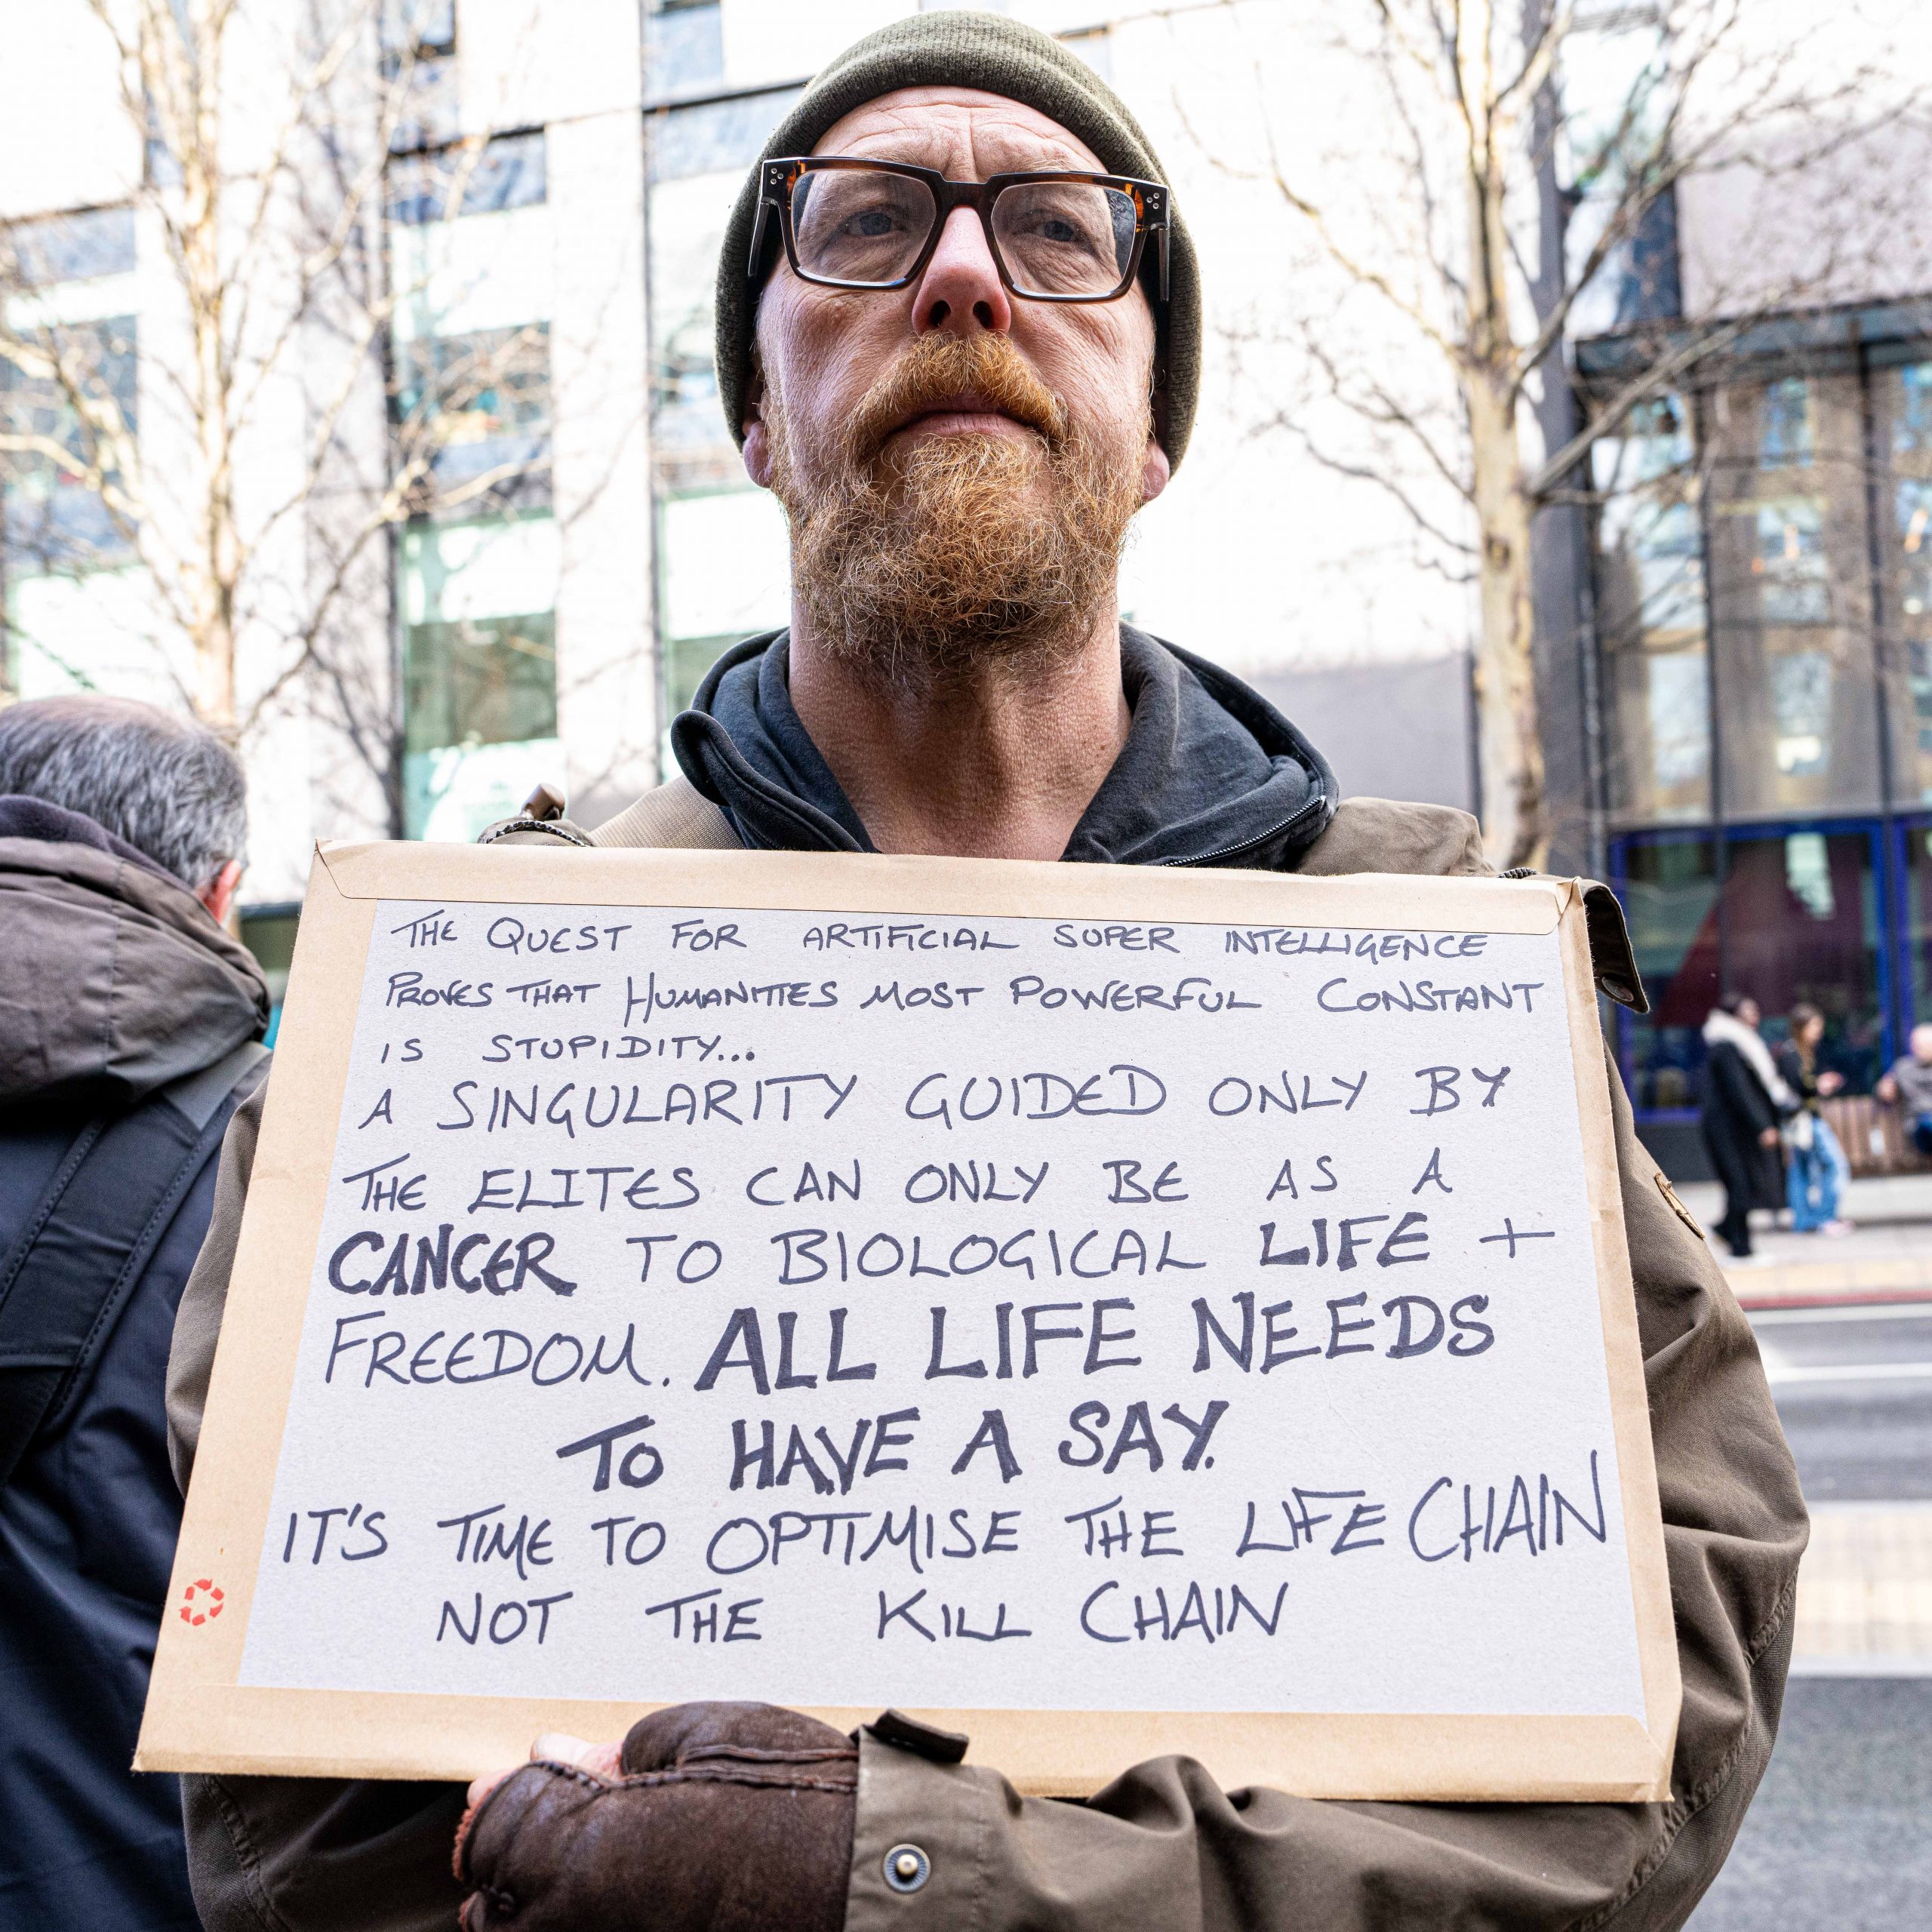 THE QUEST FOR ARTIFICIAL SUPER INTELLIGENCE
PROVES THAT HUMANITIES MOST POWERFUL CONSTANT
IS STUPIDITY...
A SINGULARITY GUIDED ONLY BY
THE ELITES CAN ONLY BE AS A
CANCER TO BIOLOGICAL LIFE +
FREEDOM. ALL LIFE NEEDS
TO HAVE A SAY.
IT'S TIME TO OPTIMISE THE LIFE CHAIN
NOT THE KILL CHAIN